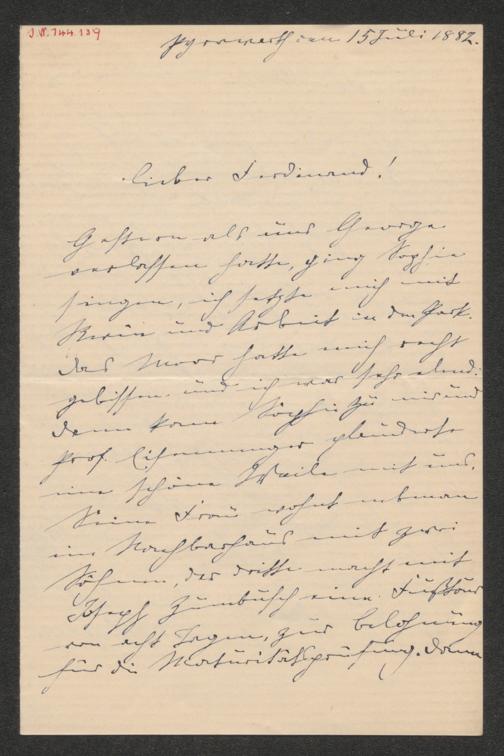 J.N. 744.139
Pyrawarth den 15 Juli 1882.
Lieber Ferdinand!
Gestern als uns George
verlassen hatte, ging Sophie
singen, ich setzte mich mit
und Arbeit in den Park.
Das Moor hatte mich recht
gebissen und ich war sehr elend.
dann kam Sophie zu mir und
Prof. plauderte
eine schöne Weile mit uns,
Seine Frau wohnt nebenan
im Nachbarhaus mit zwei
Söhnen, der dritte macht mit
Joseph Zumbusch eine Fußtour
von acht Tagen, zur Belohnung
für die Maturitätsprüfung. Dann